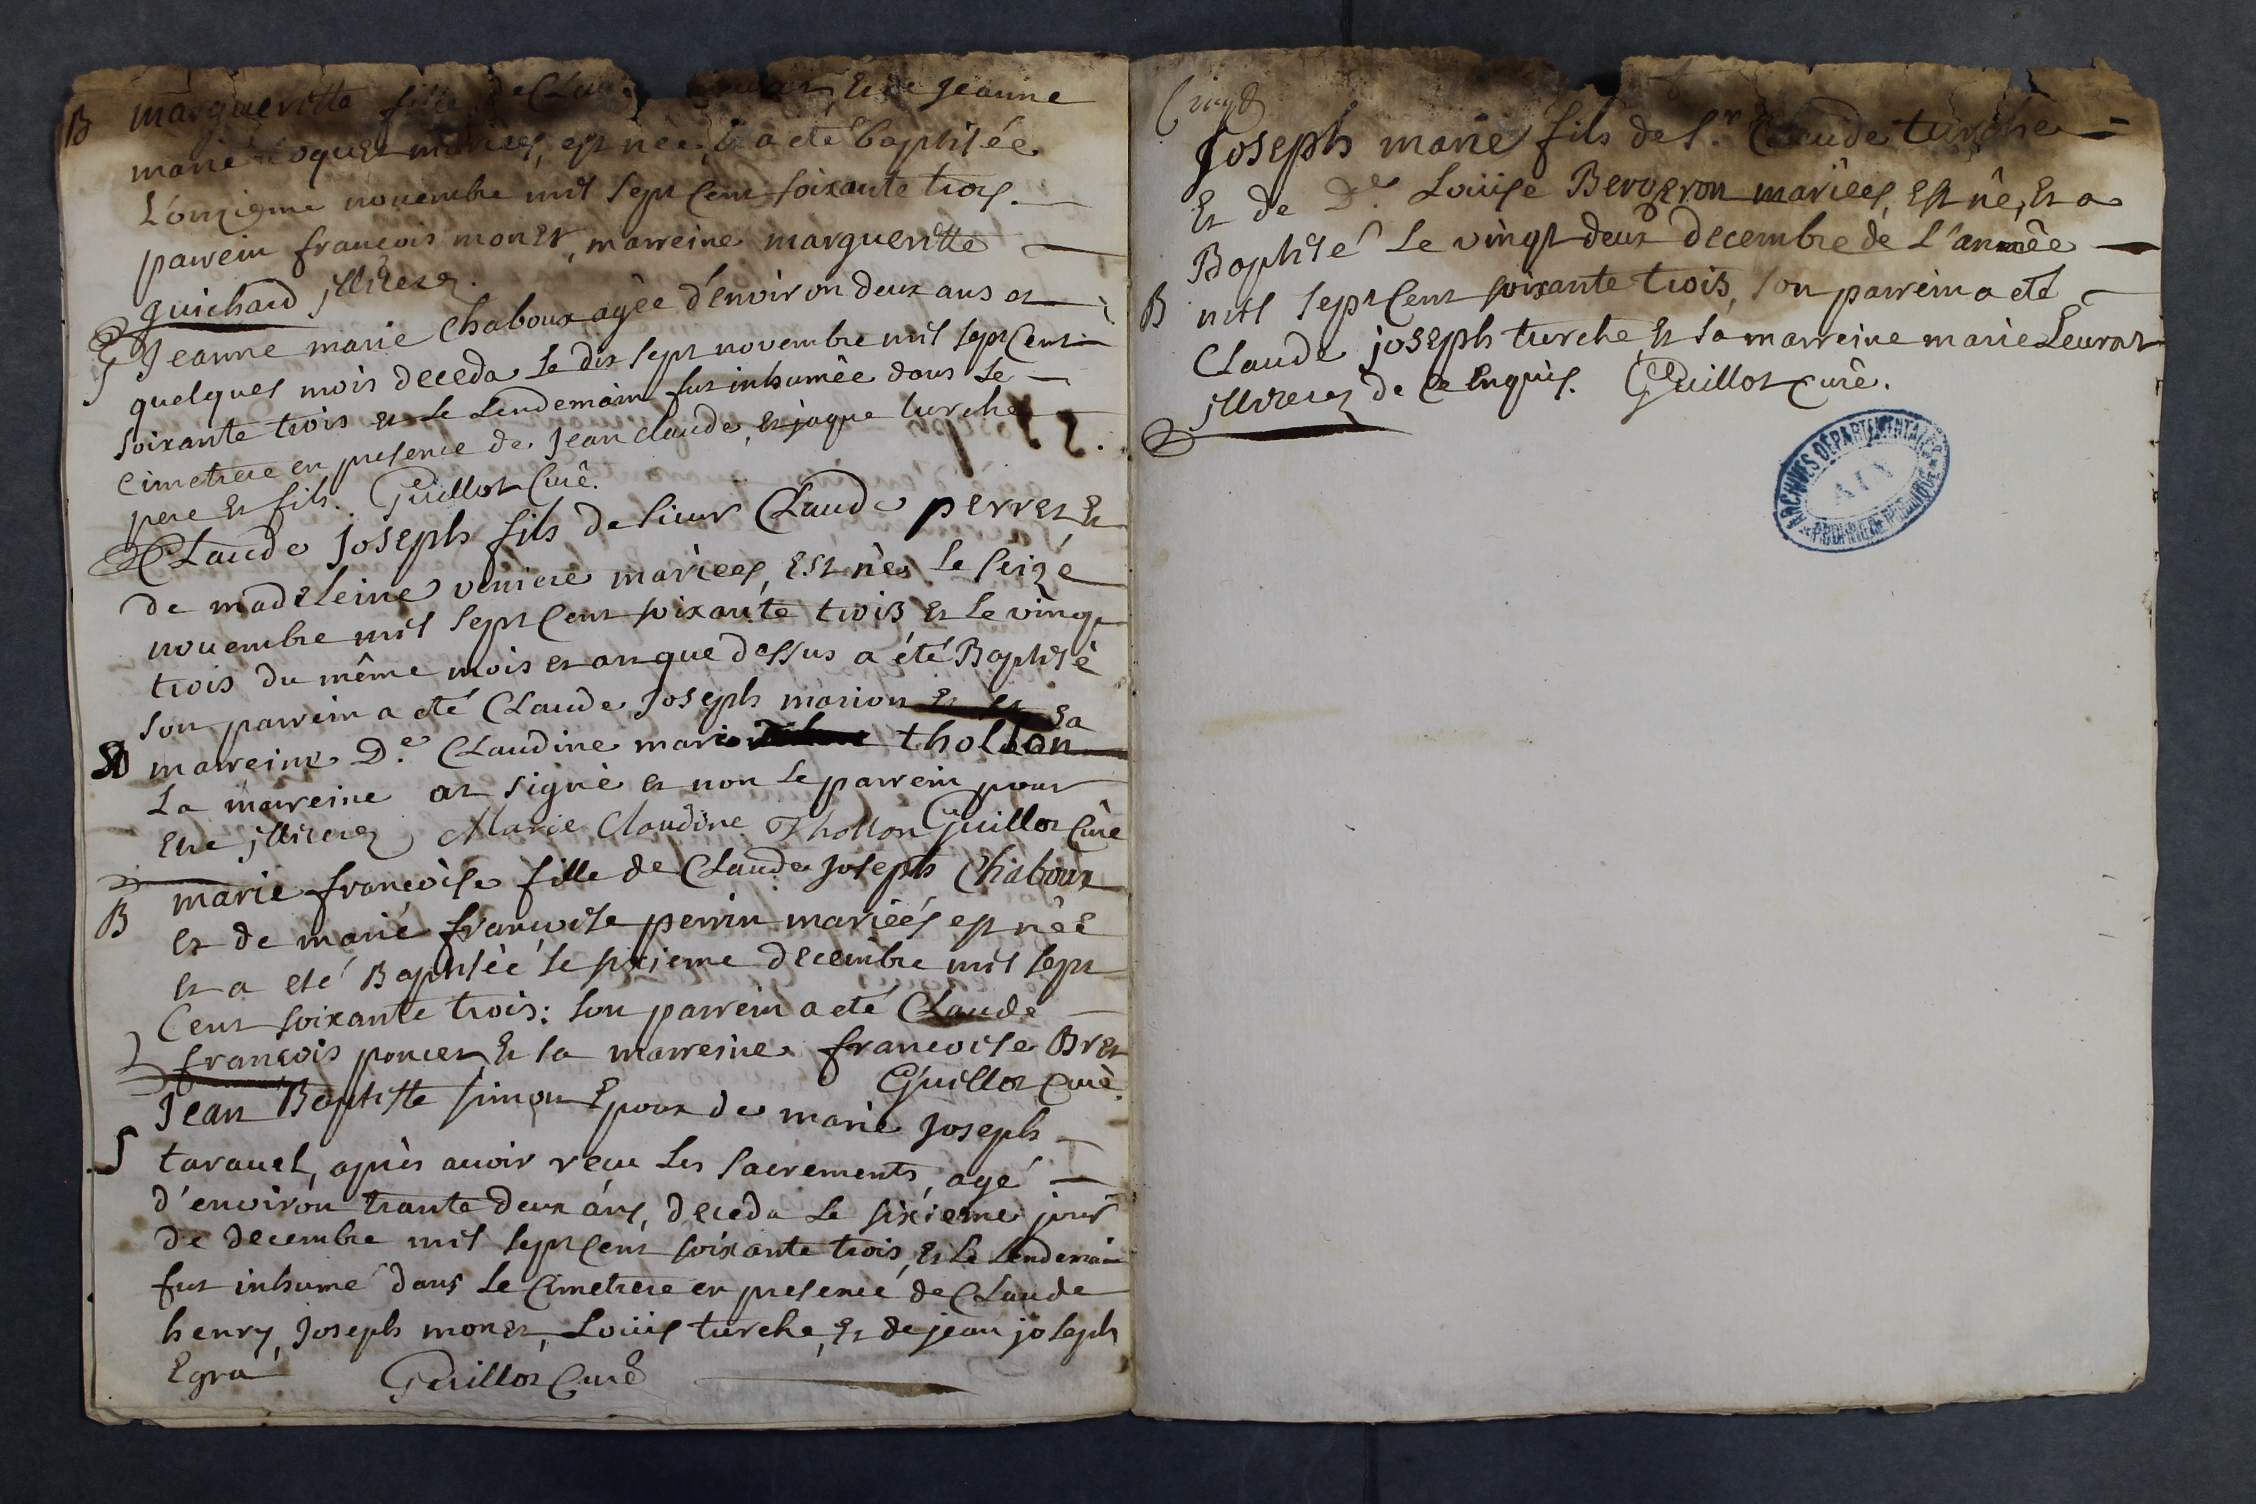 B margueritte fille de Clau Et de Jeanne
marie mariees, est née, Et a eté baptisée
L'onzieme novembre mil sept Cent soixante trois.
parrein françois monet, marreine margueritte
guichard illiterez.
S Jeanne marie Chaboux agée d'environ deux ans et
quelques mois deceda Le dix sept novembre mil sept Cent
soixante trois et Le Lendemain fut inhumée dans Le
Cimetiere en presence de Jean claude, et jaque turche
pere Et fils. Guillot Curé.
Claude Joseph fils de sieur Claude perret Et
de madeleine mariees, Est née Le seize
novembre mil sept Cent soixante trois Et Le vingt
trois du même mois et an que dessus a été Baptisé
son parrein a eté Claude Joseph marion sa
B marreine De. Claudine marie thollon
La marreine at signé et non Le parrein pour
Etre illiterez Marie Claudine Thollon Guillot Curé
B marie françoise fille de Claude Joseph Chaboux
et de marie françoise perrin mariées est née
et a eté Baptisée Le sixieme decembre mil sept
Cent soixante trois: son parrein a eté Claude
françois poncet, Et sa marreine francoise Bret
Guillot Curé.
Jean Baptiste simon Epoux de marie Joseph
S taravel, après avoir reçu Les sacrements, agé
d'environ trante deux ans, deceda Le sixieme jour
de decembre mil sept Cent soixante trois, Et Le Lendemain
fut inhumé dans Le Cimetiere en presence de Claude
henry, Joseph monet, Loüis turche, Et de jean joseph
Egra Guillot Curé
Joseph marie fils de Sr. Claude turche
Et de De. Loüise Bergeron mariées, Est né, Et a
Baptisé Le vingt deux decembre de L'année
B mil sept Cent soixante trois, son parrein a eté
Claude joseph turche, Et sa marreine marie Levrat
illiterez de ce Enquis. Guillot Curé.
ARCHIVES DÉPARTEMENTALES
AIN
PROPRIÉTÉ PUBLIQUE